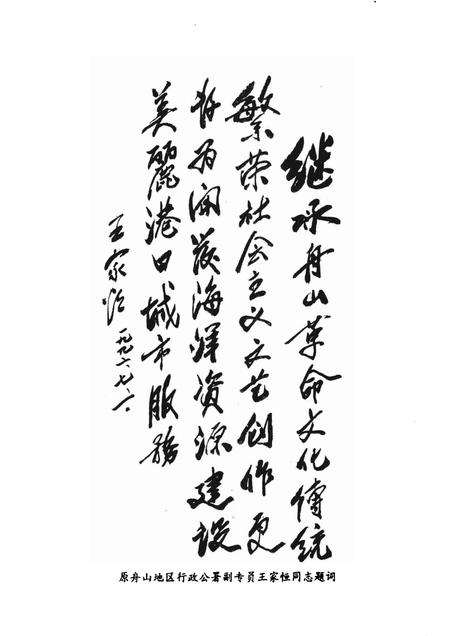 继承舟山革命文化傳统
繁荣社会主义文艺创作更
好为開荗海洋资源建设
美麗港口城市服務
王家恒
一九九六·七·六
原舟山地区行政公署副专员王家恒同志题词